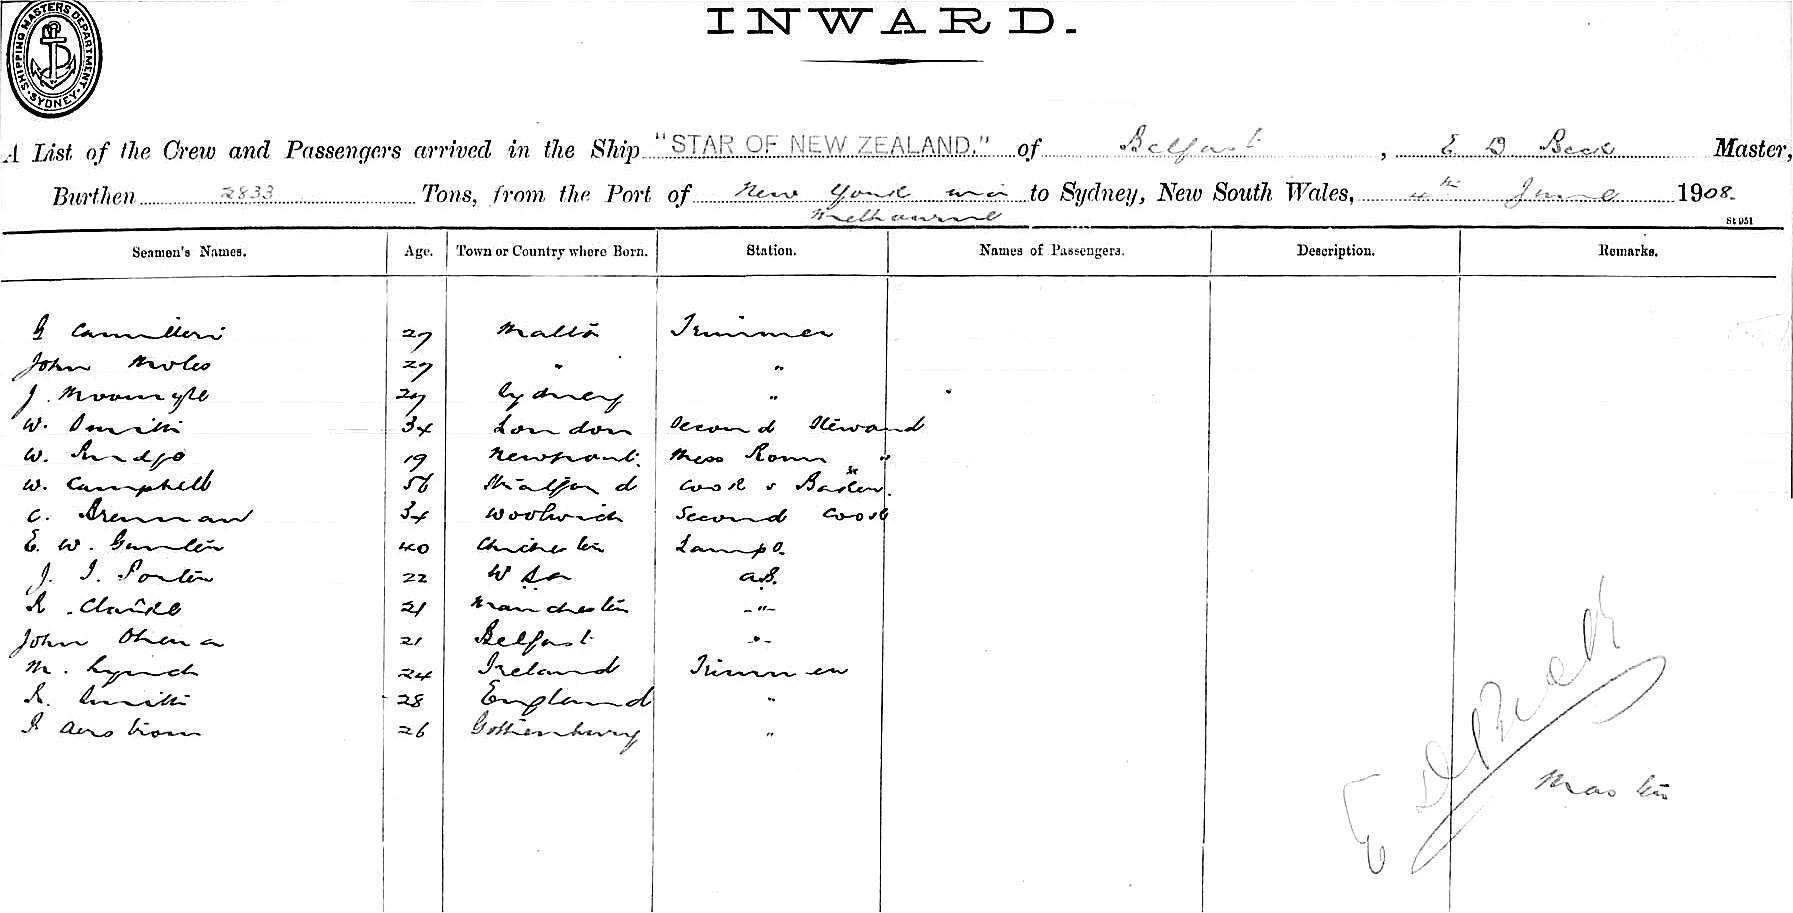 INWARD.
SHIPPING MASTERS DEPARTMENT
SYDNEY
A List of the Crew and Passengers arrived in the Ship "STAR OF NEW ZEALAND." of Belfast, E D Beck Master,
Burthen 2833 Tons, from the Port of New York via to Sydney, New South Wales, 4th June 1908.
Melbourne
St 951
Seamen's Names. Age. Town or Country where Born. Station. Names of Passengers. Description. Remarks.
G Camilleri 27 Malta Trimmer
John 27 " "
J. 27 Sydney "
W. Smith 34 London Second Steward
W. Rudge 19 Newport. Mess Room "
W. Campbell 56 Cook & Baker.
C. Brennan 34 Woolwich Second Cook
E. W. Gunter 40 Chichester Lamps.
J. I. Porter 22 A.B.
R. 21 Manchester -"-
John 21 Belfast "-
M. Lynch 24 Ireland Trimmer
R. Smith 28 England "
26 Gothenburg "
E D Beck
Master